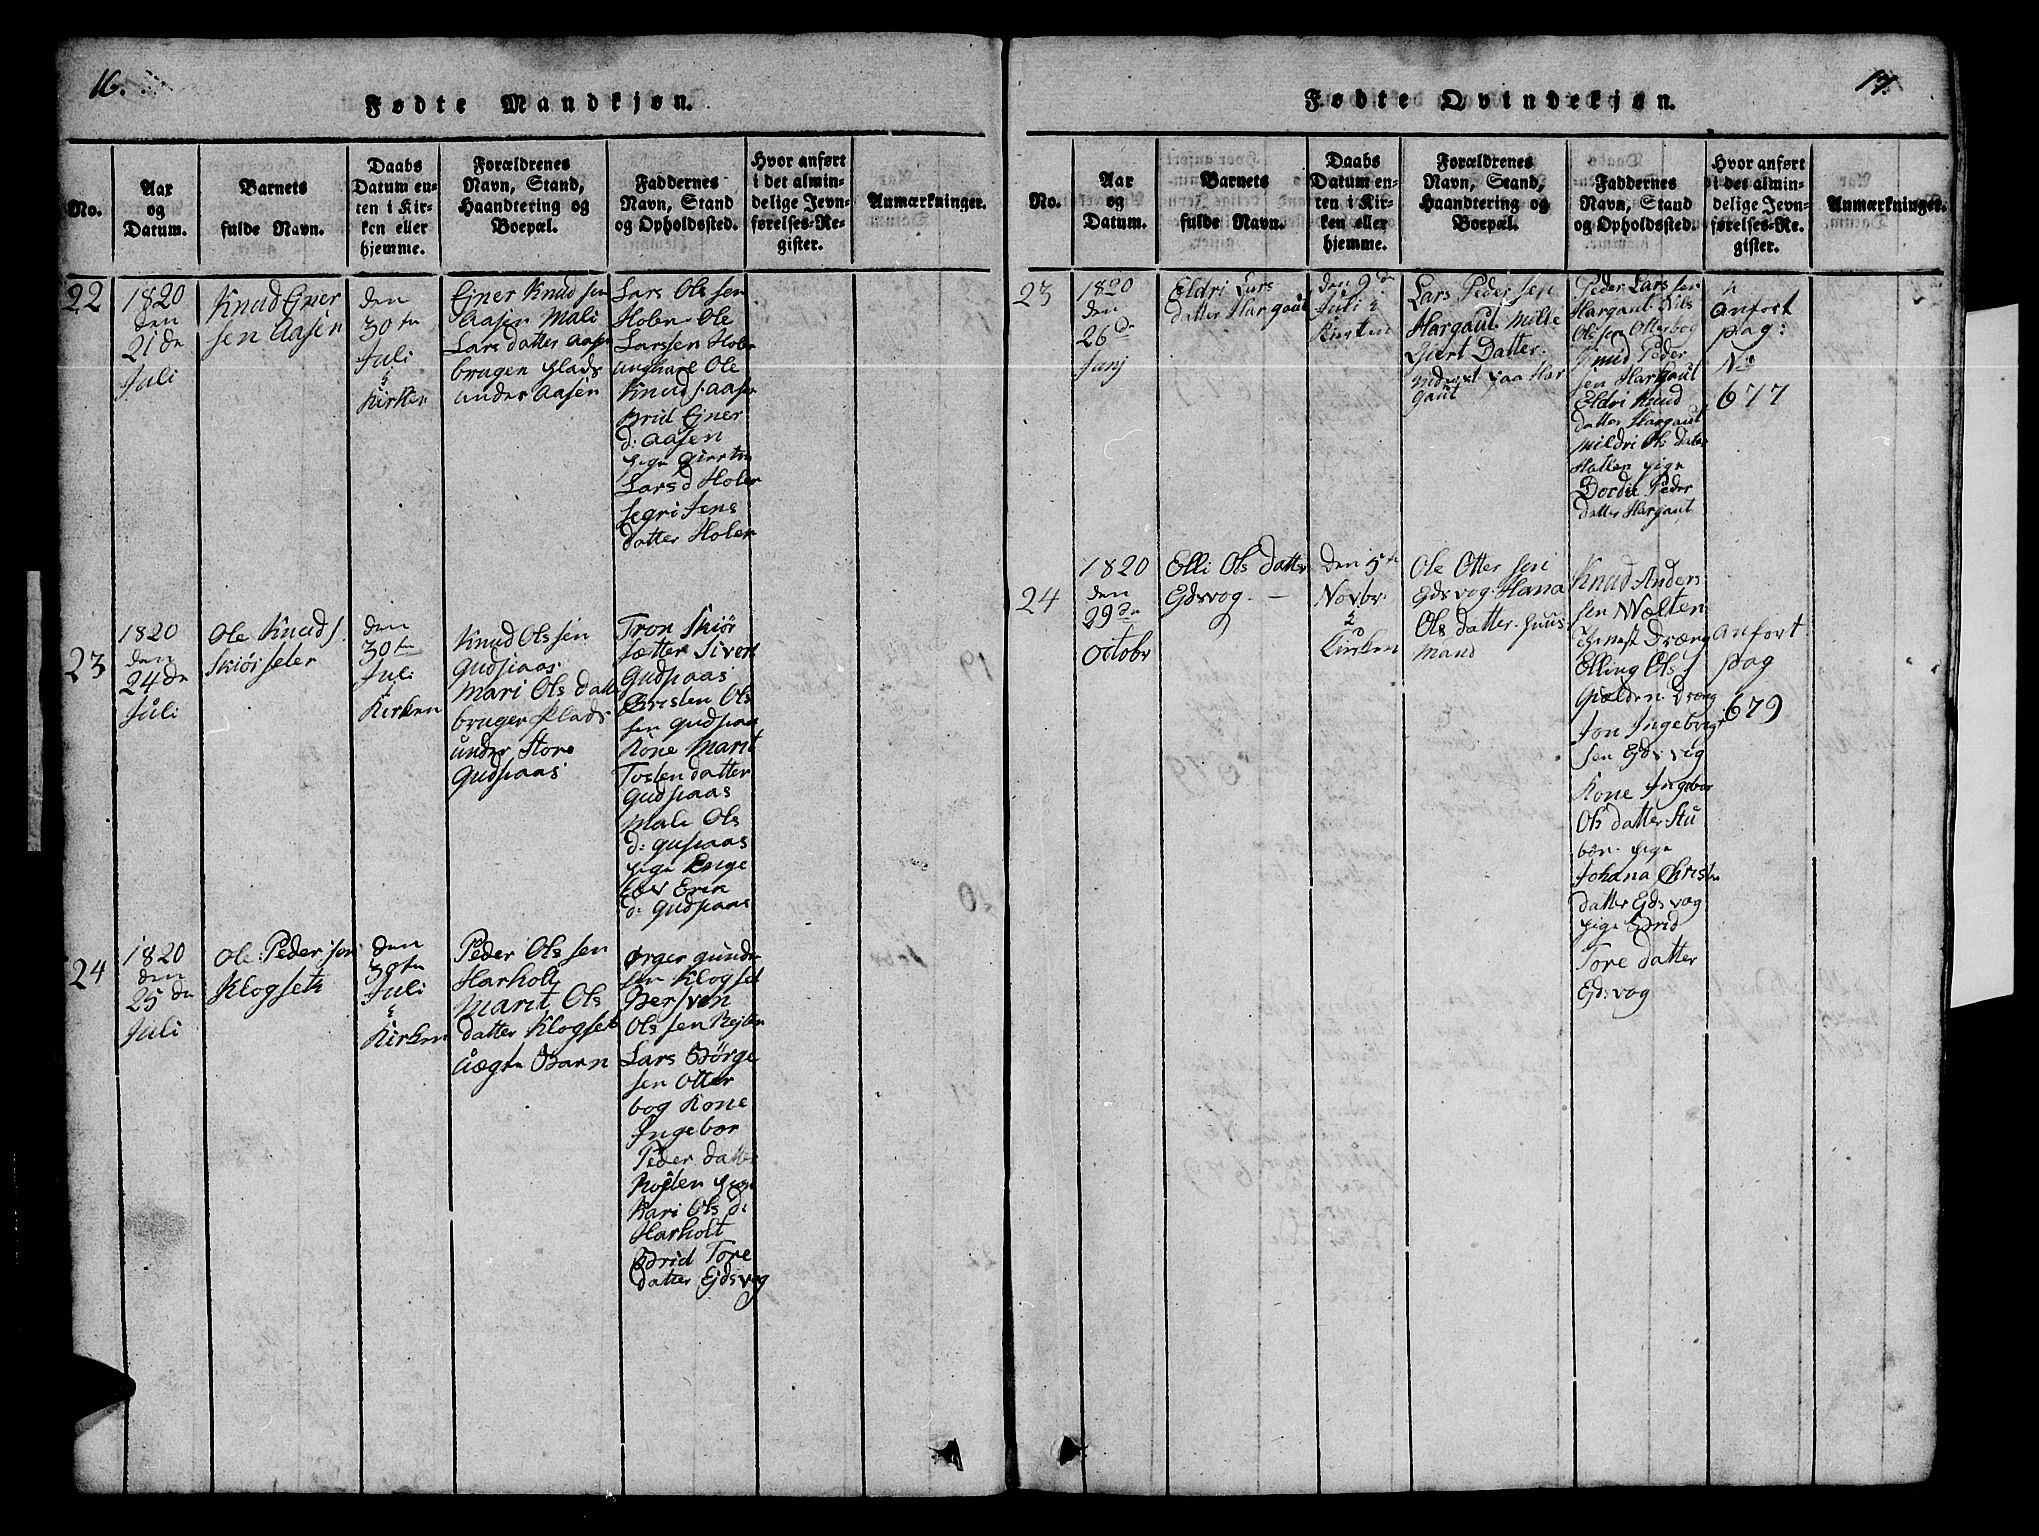 16.
Fødte Mandkjøn.
No.
Aar
og
Datum.
Barnets
fulde Navn.
Daabs
Datum en-
ten i Kir-
ken eller
hjemme.
Forældrenes
Navn, Stand,
Haandtering og
Boepæl.
Faddernes
Navn, Stand
og Opholdssted.
Hvor anført
i det almin-
delige Jevn-
førelses-Re-
gister.
Anmærkninger.
22
1820
den
21 de
Juli
Knud Ejner
sen Aasen
den
30te
Juli
i
Kirken
Ejner Knudsen
Aasen Mali
Lars datter Aasen
brugen plads
under Aasen
Lars Olssen
Holen Ole
Larssen Holen
ungkarl Ole
Knuds. Aasen
Brid Ejner
d: Aasen
pige giertru
Lars d Holen
Segri Jens
datter Holen
23
1820
den
24 de
Juli
Ole Knuds.
Skiørseter
den
30te
Juli
i
Kirken
Knud Olssen
Gudsaas
Mari Ols datter
bruger Plads
under Store
Gudsaas
Tron Skiør
sætter Sivert
Gudsaas
Cristen Ols
sen Gudsaas
Kone Marit
Tosten datter
Gudsaas
Mali Ols
d: Gusaas
pige Enge
lev Erik
d: Gudsaas
24
1820
den
25 de
Juli
Ole Pedersen
Klogseth
den
30te
Juli
i
Kirken
Peder Olssen
Harholt
Marit Ols
datter Klogset
uægte Barn
Ørger gunder
sen Klogset
Bersven
Olssen Rejten
Lars Børge
sen Otter
bog Kone
Ingebor
Peder datter
Rojten pige
Kari Ols d:
Harholt
Brid Tore
datter Ejdsvog
17.
Fødte Qvindekjøn.
No.
Aar
og
Datum.
Barnets
fulde Navn.
Daabs
Datum en-
ten i Kir-
ken eller
hjemme.
Forældrenes
Navn, Stand,
Haandtering og
Boepæl.
Faddernes
Navn, Stand
og Opholdssted.
Hvor anført
i det almin-
delige Jevn-
førelses-Re-
gister.
Anmærkninger.
23
1820
den
26 de
Junj
Eldri Lars
datter Hargaut
den 9de
Juli i
Kirken
Lars Pedersen
Hargaut Mille
Giert Datter
paa Har
gaut
Peder Larssen
Hargaut Nils
Olssen Otterbog
Knud Peder
sen Hargaut
Eldri Knud
datter Hargaut
Mildri Ols datter
Hatlen pige
Dordie Peder
datter Hargaut
Anfort
pag:
No
677
24
1820
den
29 de
Octobr
Elli Ols datter
Edsvog. —
den 5te
Novbr
i
Kirken
Ole Ottersen
Edsvog Hana
Ols datter. huus
mand
Knud Anders
sen Wælten
Ernest Dræng
Elling Ols
Gælden Dræng
Jon Ingebrigt
sen Edsvog
Kone Ingebor
Ols datter Stu
bøn. pige
Johana Christen
datter Edsvog
pige Brid
Tore datter
Edsvog
Anfort
pag
679